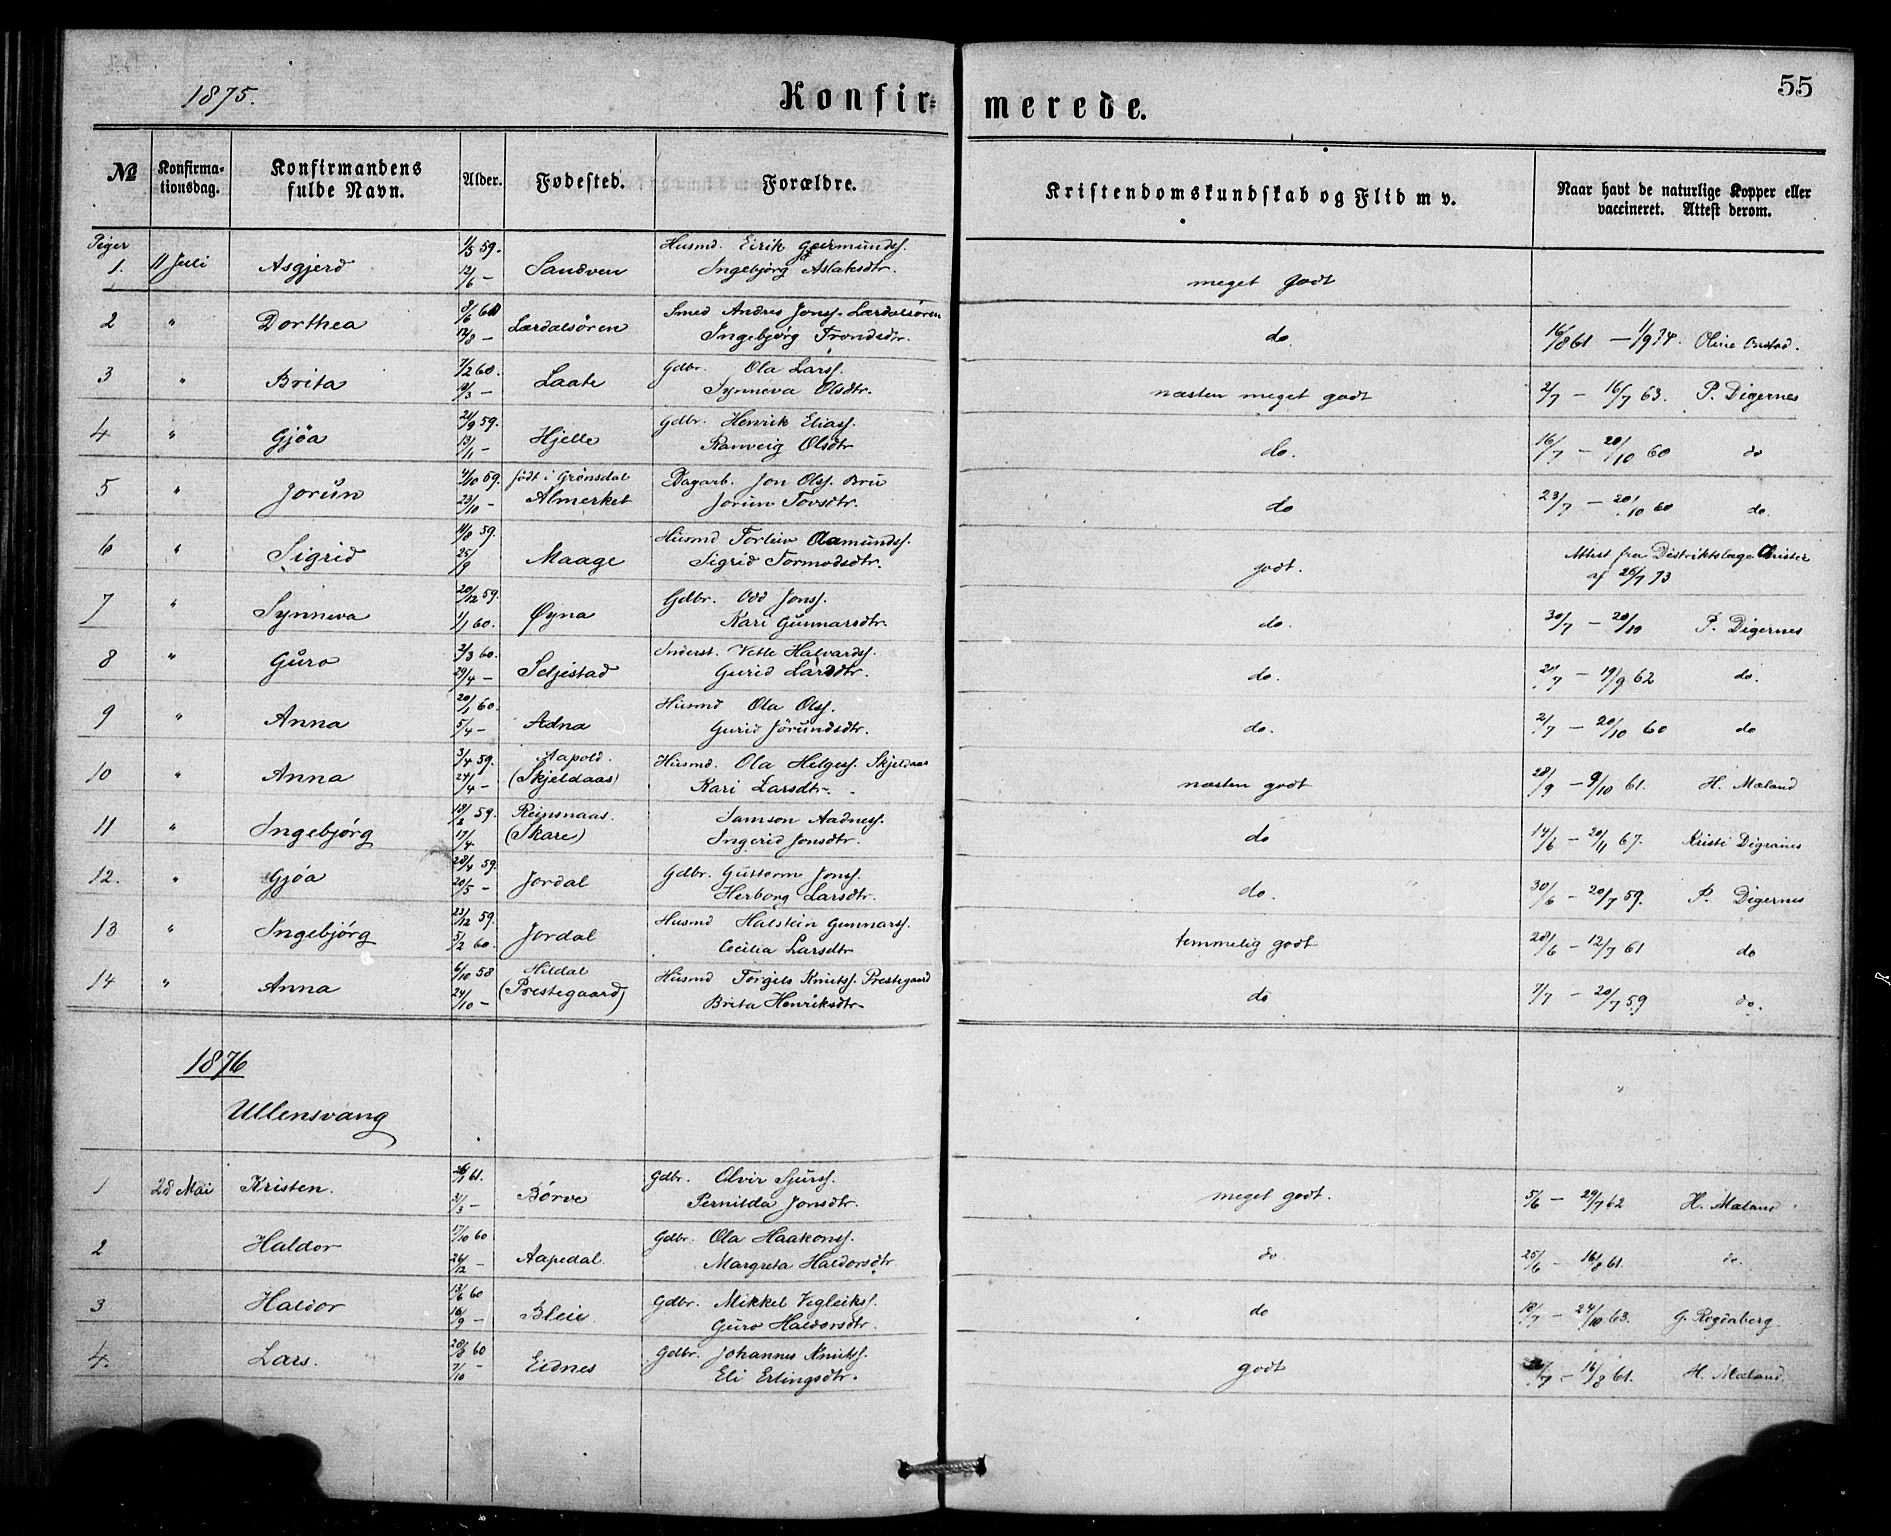 1875.
Konfir=
merede.
55
No
Konfirma-
tionsdag.
Konfirmandens
fulde Navn.
Alder.
Fodested.
Forældre.
Kristendomskundskab og Flid m v.
Naar havt de naturlige Kopper eller
vaccineret. Attest derom.
Piger
1. 11 Juli Asgjerd 1/5 59. 12/6 – Sandven Husmd Eirik Geirmundss.
Ingebjørg Aslaksdtr. meget godt
2 " Dorthea 12/8 – Lærdalsören Smed Andres Jonss. Lærdalsören
Ingebjørg Trondsdtr. do. 16/8 61 – 11/9 74. Oline
3 " Brita 7/2 60. Laate Gdbr. Ola Larss.
Synneva Olsdtr. næsten meget godt 2/7 – 16/7 63. P. Digernes
4 " Gjøa 21/9 59. 13/11 – Hjelle Gdbr. Henrik Eliass.
Ranveig Olsdtr do. 16/7 – 20/10 60 do
5 " Jorun 4/10 59. 23/10 – født i Grønsdal
Almerket Dagarb. Jon Olss. Bru
Jorun Tovsdtr. do 23/7 – 20/10 60 do.
6 " Sigrid 11/8 59. 25/9 Maage Husmd Torleiv Aamundss.
Sigrid Tormodsdtr. godt. Attest fra Distriktslæge
af 26/7 73
7 " Synneva 20/12 59. 1/1 60. Øyna Gdbr. Odd Jonss.
Kari Gunnarsdtr. do. 30/7 – 20/10 P. Digernes
8 " Guro 2/3 60. 29/4 – Seljestad Inderst. Vetle Halvardss.
Gurid Larsdtr. do. 21/7 – 19/9 62 do.
9 " Anna 20/1 60. 5/4 – Adna Husmd Ola Olss.
Gurid Jörundsdtr. do. 2/7 – 20/10 60 do
10 " Anna 3/4 59. 24/4 – Aapold.
(Skjeldaas) Husmd. Ola Helgess. Skjeldaas
Kari Larsdtr. næsten godt 28/9 – 9/10 61. H. Mæland
11 " Ingebjørg 59. 17/4 Reinsnaas.
(Skare) Samson Aadness.
Ingerid Jonsdtr. do 14/6 – 20/11 67. Kristi Digranes
12. " Gjøa 28/4 59. 20/5 – Jordal Gdbr. Guttorm Jonss.
Herborg Larsdtr. do. 30/6 – 20/7 59. P. Digernes
13 " Ingebjørg 23/12 59. 5/2 60. Jordal Husmd Halstein Gunnarss.
Cecilia Larsdtr temmelig godt 28/6 – 12/7 61 do
14 " Anna 6/10 58 24/10 – Hildal
(Prestegaard) Husmd Torgils Knutss. Prestegaard
Brita Henriksdtr do 7/7 – 20/7 59 do.
1876
Ullensvang
1 28 Mai Kristen. 26/1 61. 31/3 – Børve Gdbr. Olvir Sjurss.
Pernilda Jonsdtr. meget godt. 5/6 – 29/7 62 H. Mæland
2 Haldor 17/10 60 26/12 – Aapedal. Gdbr. Ola Haakonss.
Margreta Haldorsdtr do 25/6 – 16/8 61. do.
3 Haldor 13/6 60 16/9 – Bleie. Gdbr. Mikkel Vegleikss.
Guro Haldorsdtr. do 18/7 – 24/10 63. G. Rogdaberg
4. Lars. 28/8 60 7/10 – Eidnes Gdbr. Johannes Knutss.
Eli Erlingsdtr. godt – 16/8 61. H. Mæland.